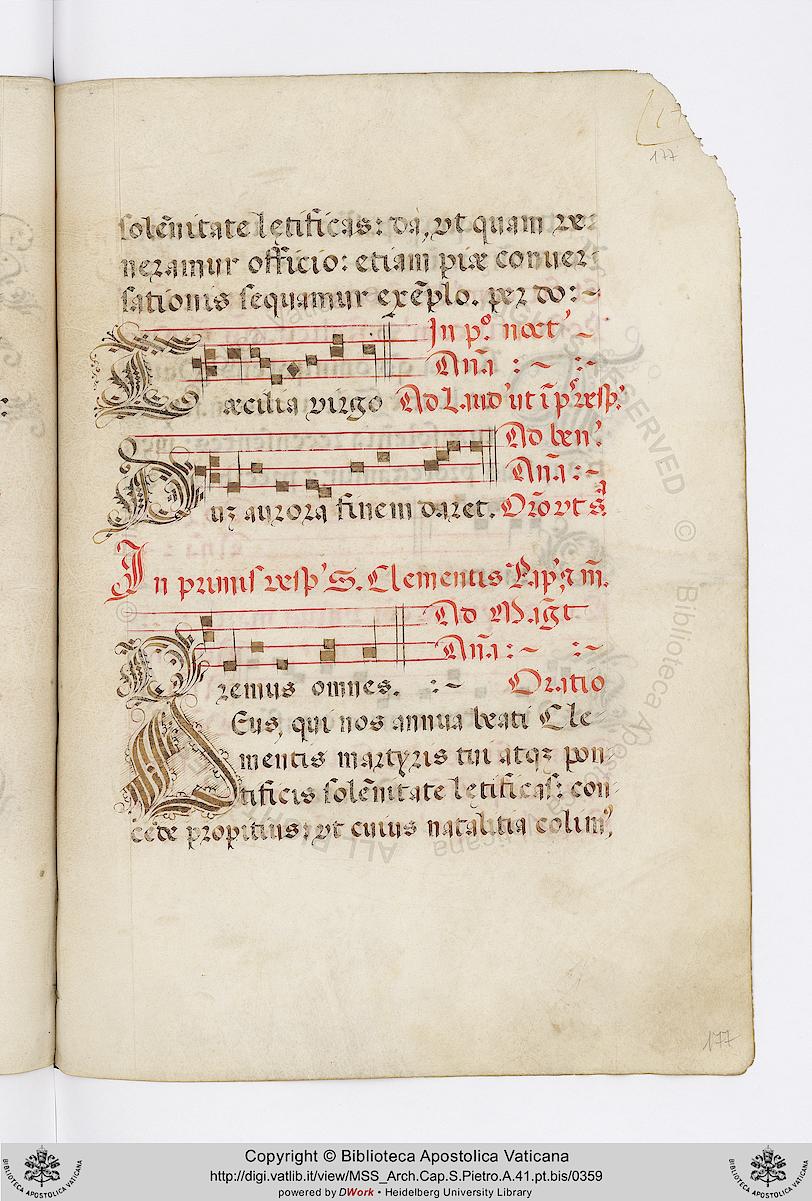 177
solẽnitate lętificas: da, vt quam ve-
neramur officio: etiam piæ conuer-
sationis sequamur exẽplo. per do:~
In pº. noct'~
Añа :~ :~
Cæcilia virgo Ad Laud' ut ĩ pº resp'
Ad ben'.
Aña:~
Duz aurora finem daret. Orõ vt s
In primis resp' S. Clementis Pap', & m̃.
Ad Mag̃t
Aña:~ :~
Oremus omnes. :~ Oratio
DEus, qui nos annua beati Cle-
mentis martyris tui atqz pon-
tificis solẽnitate lętificas: con-
cede propitius; vt cuius natalitia colim',
177
ALL RIGHTS RESERVED © Biblioteca Apostolica Vaticana
BIBLIOTECA APOSTOLICA VATICANA
Copyright © Biblioteca Apostolica Vaticana
http://digi.vatlib.it/view/MSS_Arch.Cap.S.Pietro.A.41.pt.bis/0359
powered by DWork • Heidelberg University Library
BIBLIOTECA APOSTOLICA VATICANA